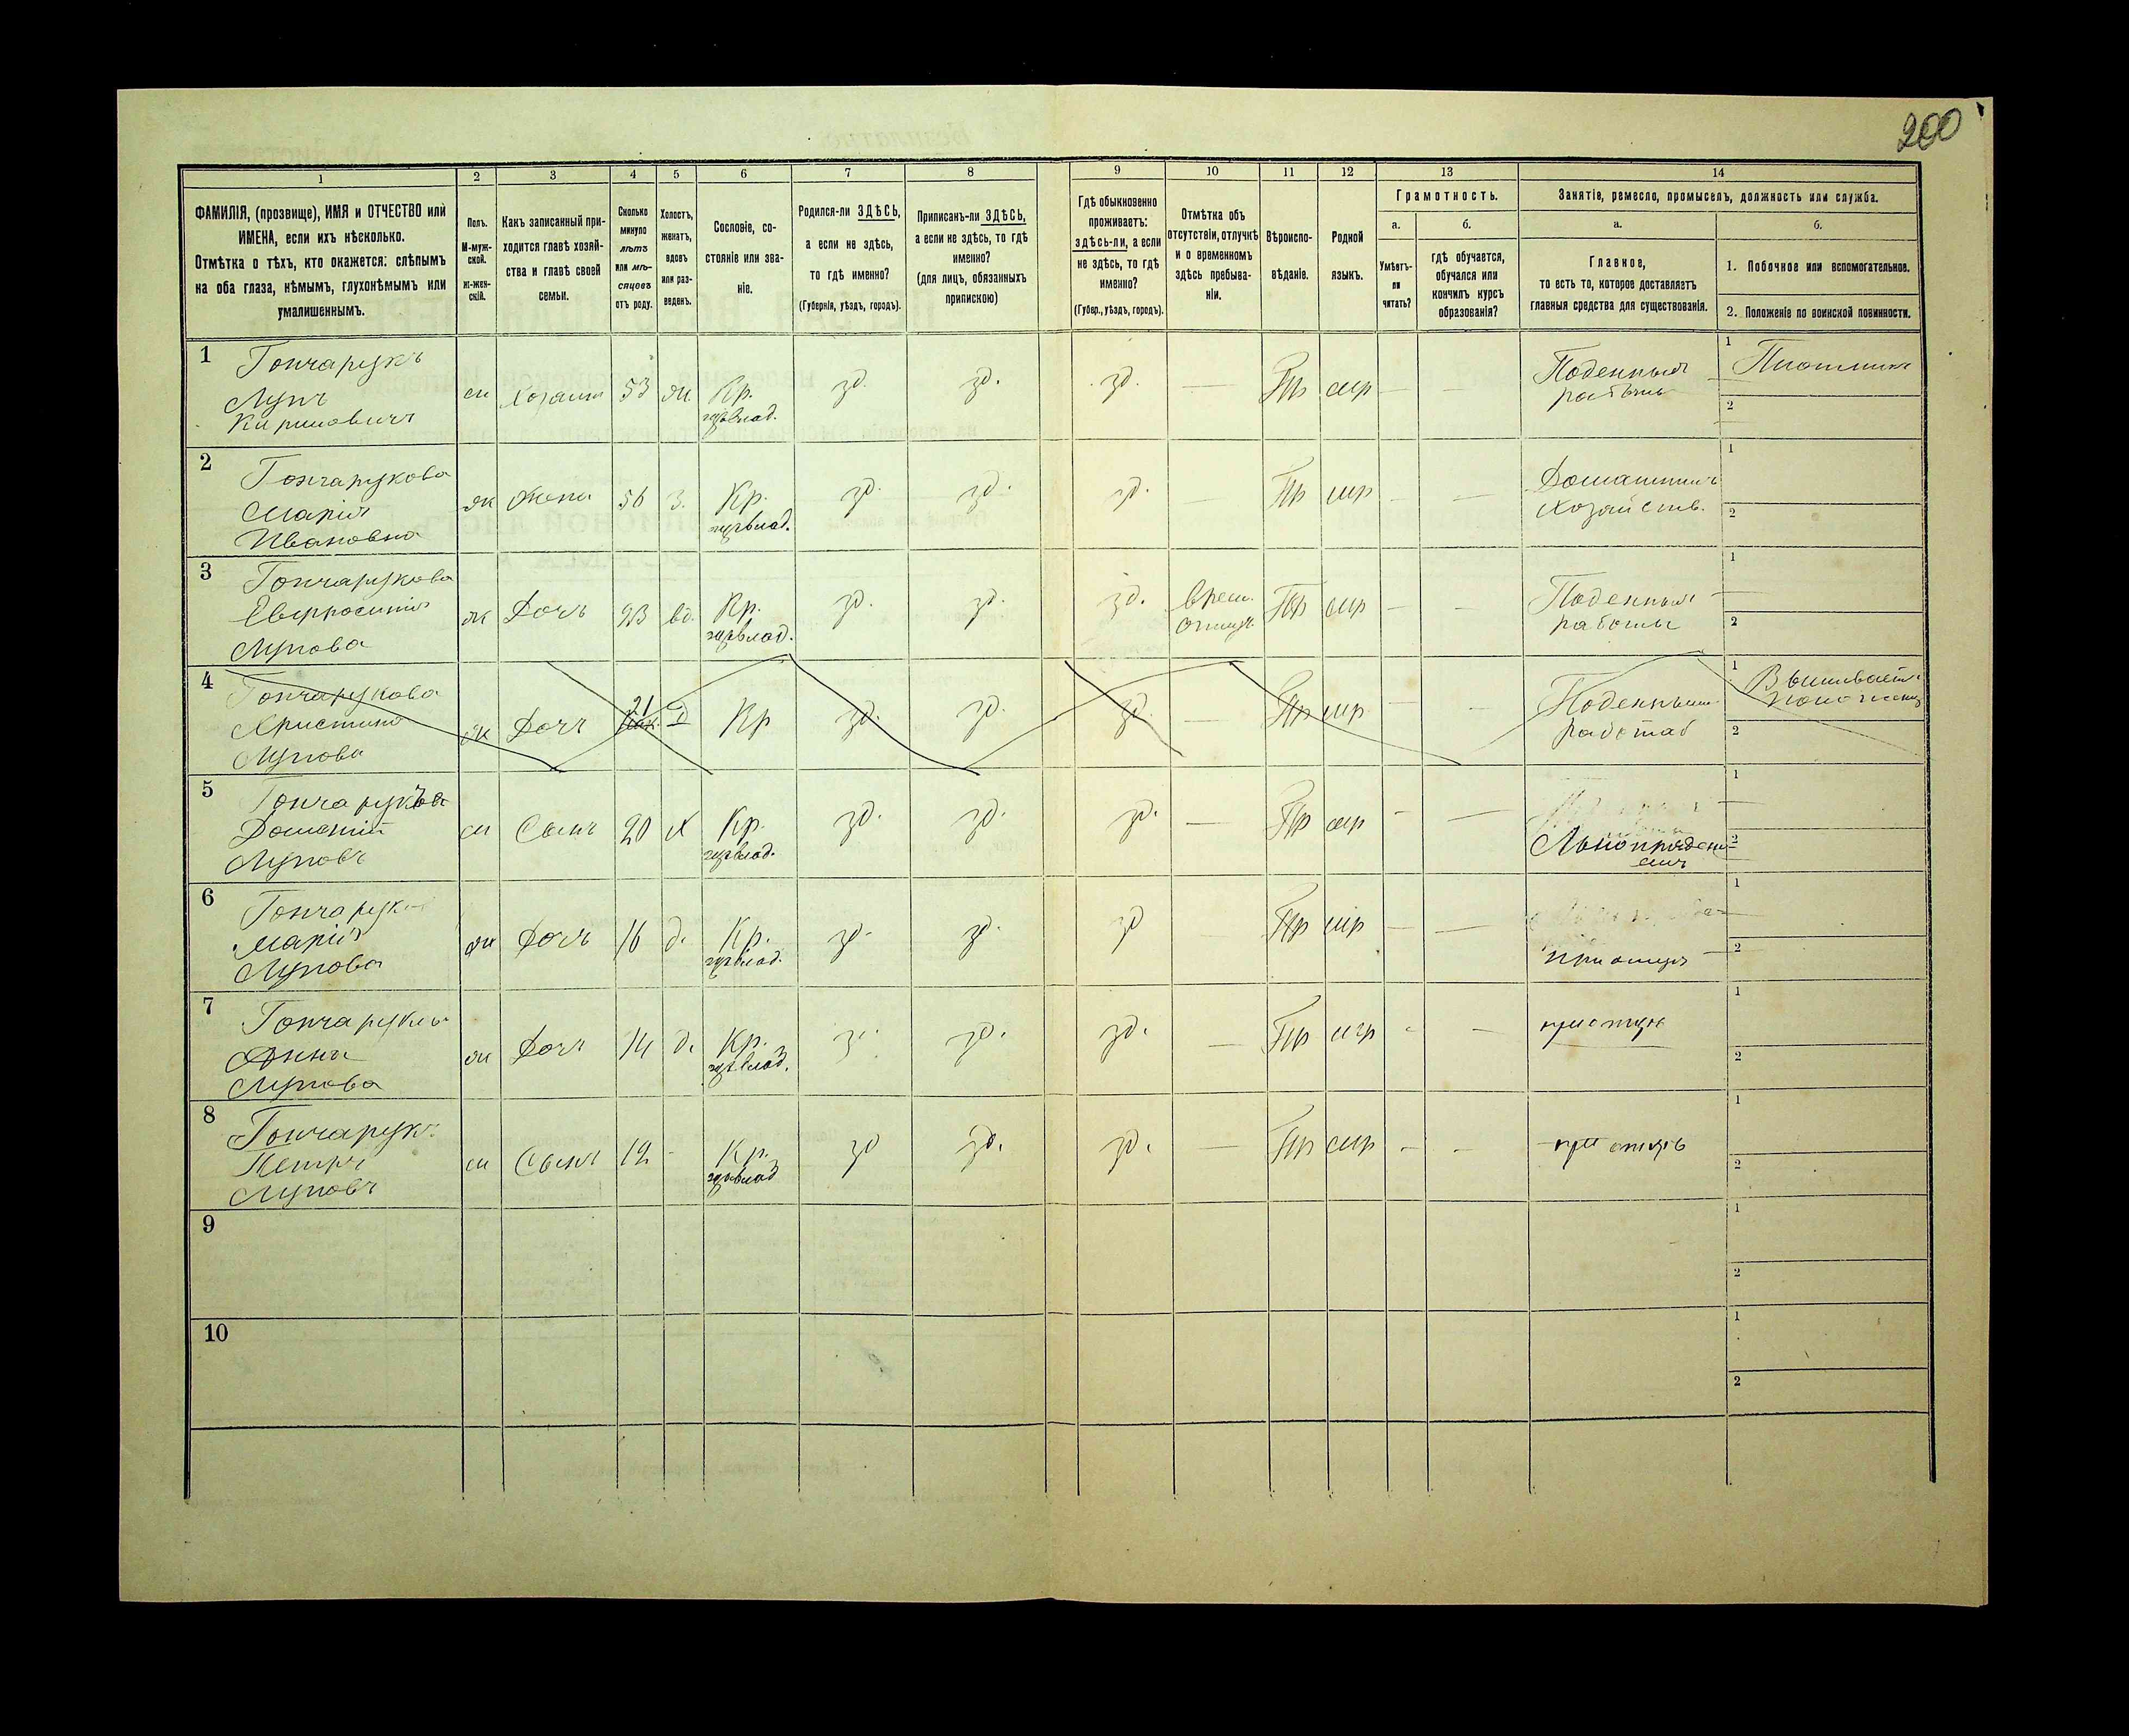 200
1 2 3 4 5 6 7 8 9 10 11 12 13 14
ФАМИЛІЯ, (прозвище), ИМЯ и ОТЧЕСТВО или
ИМЕНА, если ихъ нѣсколько.
Отмѣтка о тѣхъ, кто окажется: слѣпымъ
на оба глаза, нѣмымъ, глухонѣмымъ или
умалишеннымъ.
Полъ.
М-муж-
ской.
Ж-жен-
скій.
Какъ записанный при-
ходится главѣ хозяй-
ства и главѣ своей
семьи.
Сколько
минуло
лѣтъ
или мѣ-
сяцевъ
отъ роду.
Холостъ,
женатъ,
вдовъ
или раз-
веденъ.
Сословіе, со-
стояніе или зва-
ніе.
Родился-ли ЗДѢСЬ,
а если не здѣсь,
то гдѣ именно?
(Губернія, уѣздъ, городъ).
Приписанъ-ли ЗДѢСЬ,
а если не здѣсь, то гдѣ
именно?
(для лицъ, обязанныхъ
припискою)
Гдѣ обыкновенно
проживаетъ:
здѣсь-ли, а если
не здѣсь, то гдѣ
именно?
(Губер., уѣздъ, городъ).
Отмѣтка объ
отсутствіи, отлучкѣ
и о временномъ
здѣсь пребыва-
ніи.
Вѣроиспо-
вѣданіе.
Родной
языкъ.
Грамотность.
а.
Умѣетъ-
ли
читать?
б.
гдѣ обучается,
обучался или
кончилъ курсъ
образованія?
Занятіе, ремесло, промыселъ, должность или служба.
а.
Главное,
то есть то, которое доставляетъ
главныя средства для существованія.
б.
1. Побочное или вспомогательное.
2. Положеніе по воинской повинности.
1 Гончарукъ
Лупъ
Кириловичъ
м Хозяинъ 53 ж Кр. зд. зд. зд. — Пр мр — —
Поденныя
работы
1
2
2 Гончарукова
Марія
Ивановна
ж Жена 56 з. Кр. зд. зд. зд. — Пр мр — —
Домашнимъ
Хозяйств.
1
2
3 Гончарукова
Евфросинія
Лупова
ж Дочь 23 вд. Кр. зд. зд. зд. Врем.
Пр мр — —
Поденныя
работы
1 —
2
4 Гончарукова
Христина
Лупова
ж Дочь 21 д Кр зд. зд. зд. — Пр мр — —
1 Вышиваетъ
2
5
Луповъ
м Сынъ 20 х Кр. зд. зд. зд. — Пр мр — —
1 —
2 —
6
Марія
Лупова
ж Дочь 16 д. Кр. зд. зд. зд — Пр мр — —
при отцѣ
1 —
2 —
7
Анна
Лупова
ж Дочь 14 д. Кр. зд. зд. зд. — Пр мр - —
при отцѣ
1
2
8 Гончарукъ
Петръ
Луповъ
м Сынъ 12 - Кр. зд зд. зд. — Пр мр - -
при отцѣ
1
2
9
1
2
10
1
2